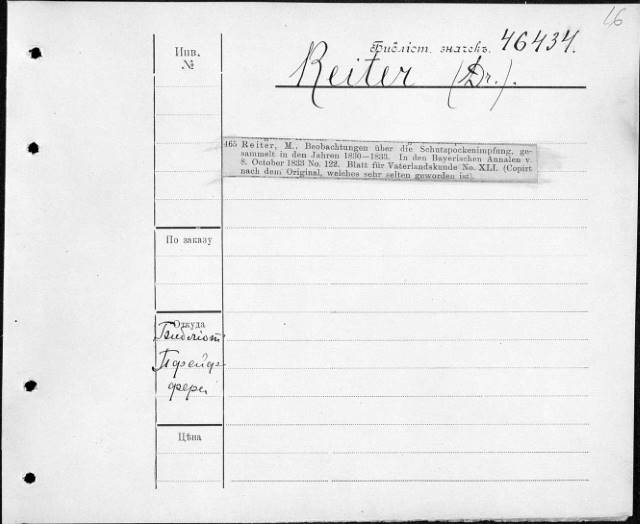 16
Инв.
№
Библіот. значекъ. 46434.
Reiter (Dr.).
465 Reiter, M., Beobachtungen über die Schutzpockenimpfung, ge-
sammelt in den Jahren 1830—1833. In den Bayerischen Annalen v.
8. October 1833 No. 122. Blatt für Vaterlandskunde No. XLI. (Copirt
nach dem Original, welches sehr selten geworden ist).
По заказу
Откуда
Библіот
Пфейф-
фера
Цѣна